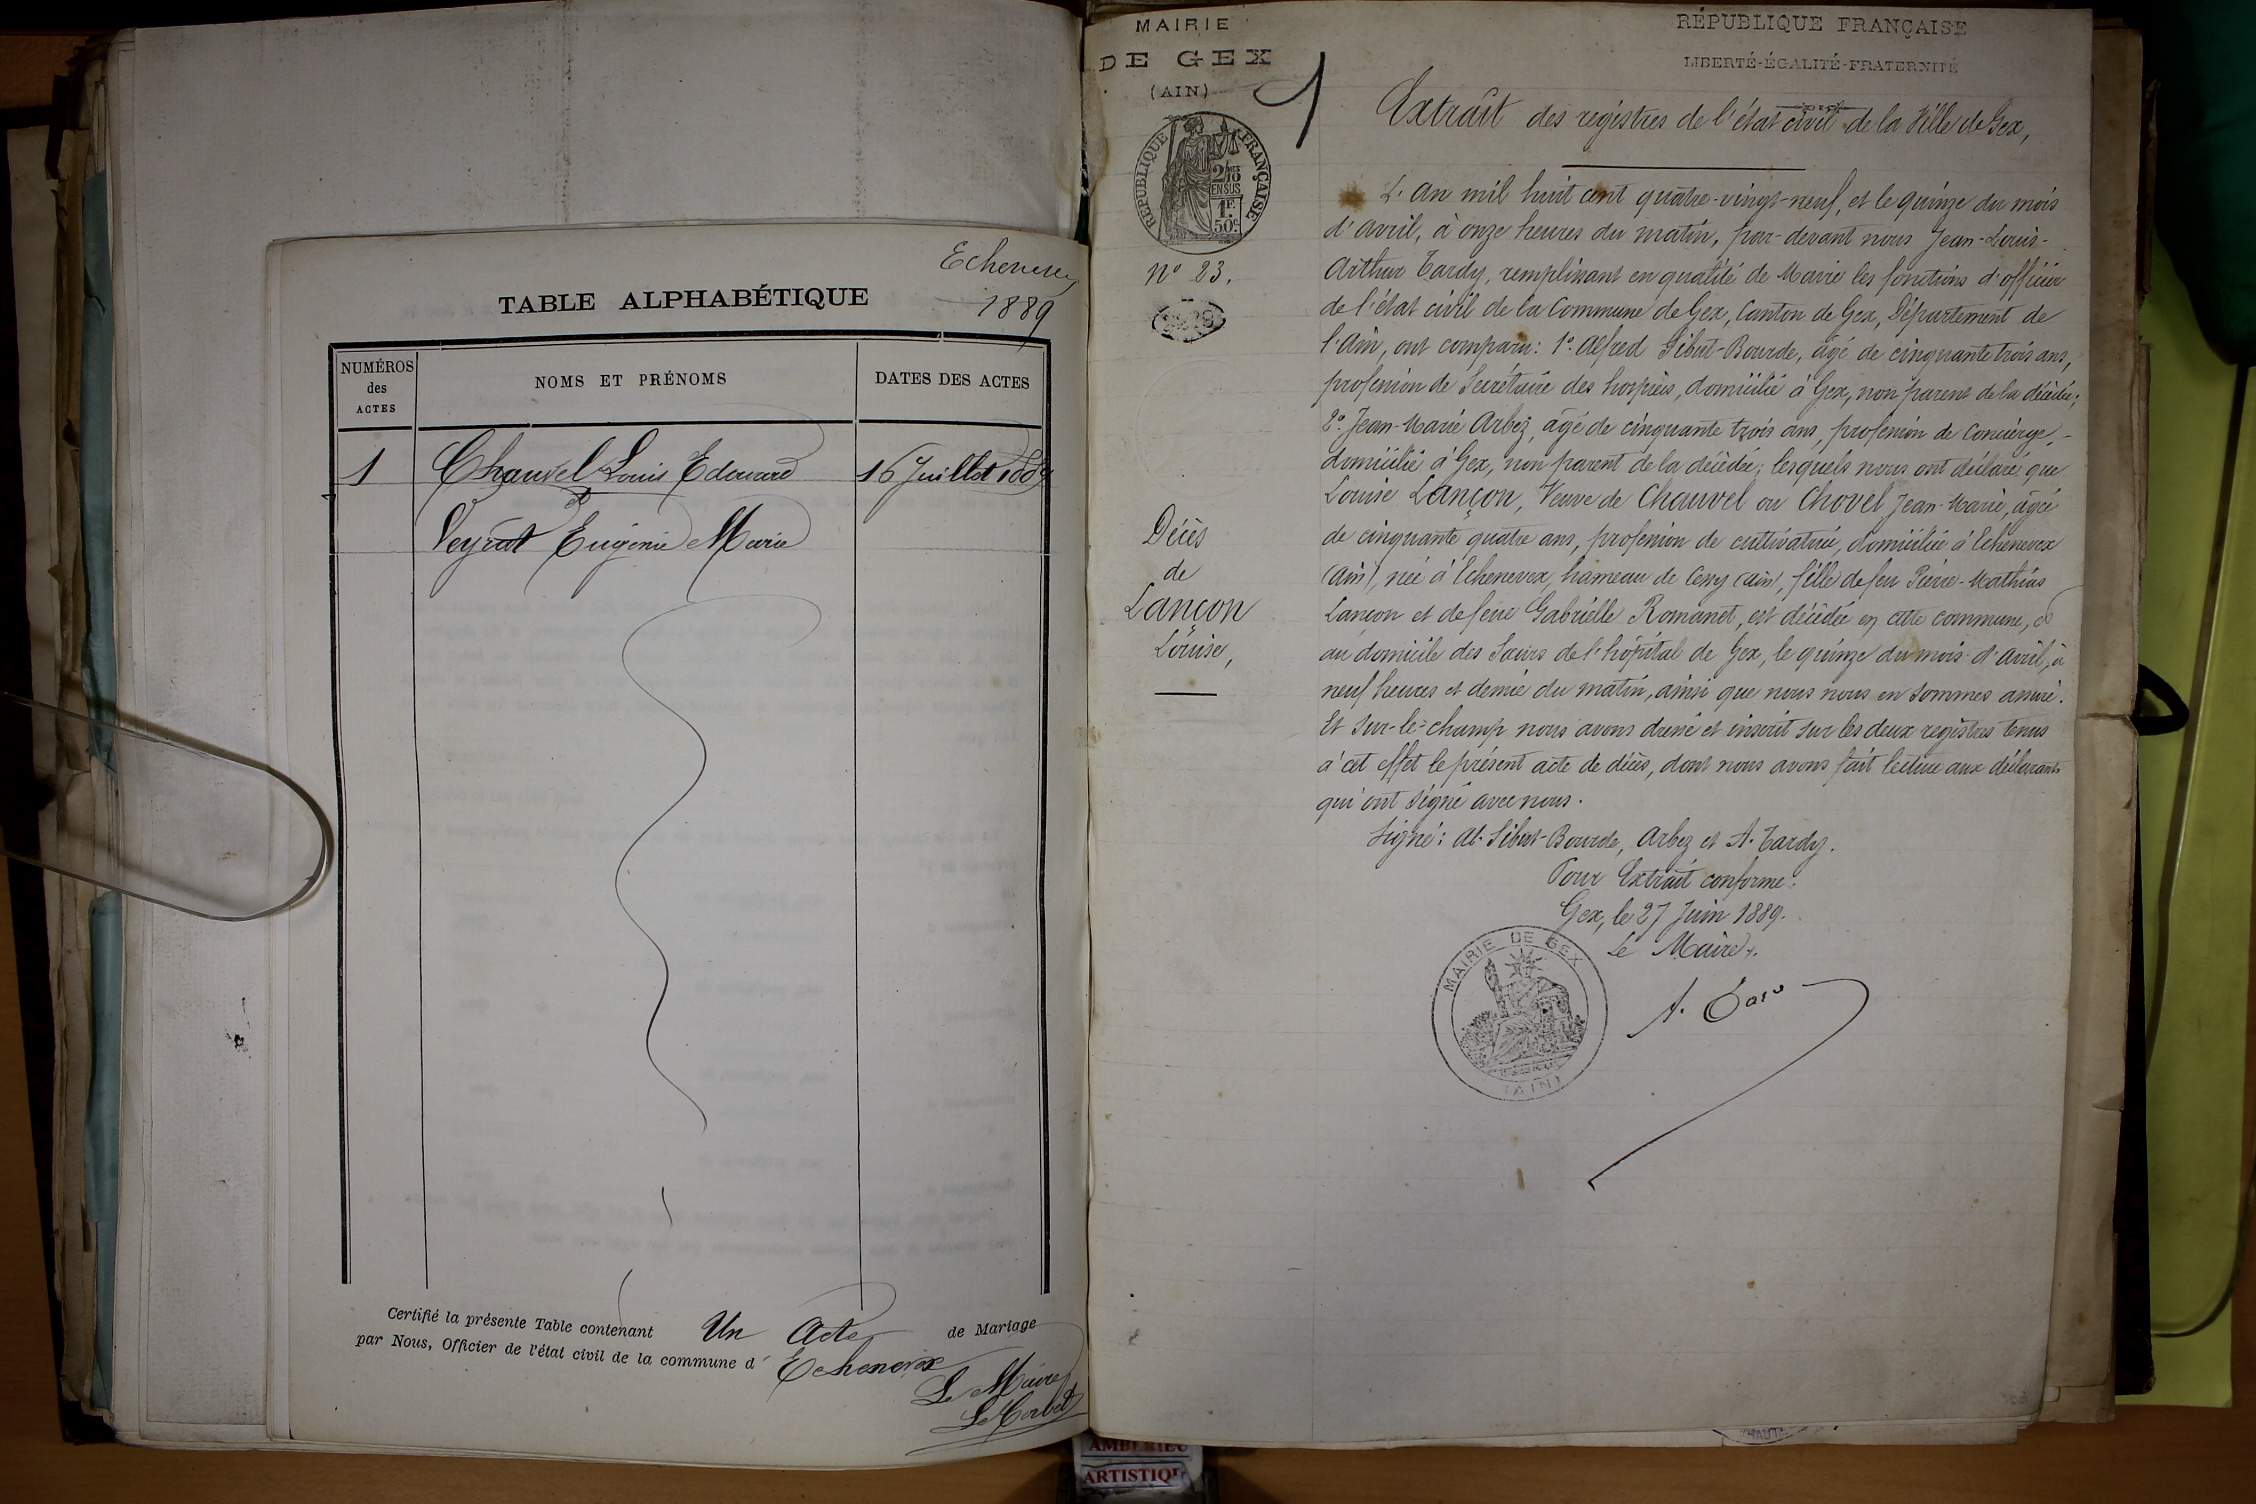 Echenevex
1889
TABLE ALPHABÉTIQUE
NUMÉROS
des
ACTES
NOMS ET PRÉNOMS
DATES DES ACTES
1 Chauvel Louis Edouard 16 Juillet 1889
Veyrat Eugénie Marie
Certifié la présente Table contenant Un Acte de Mariage
par Nous, Officier de l'état civil de la commune d' Echenevex
Le Maire
MAIRIE
DE GEX
(AIN)
1
REPUBLIQUE FRANÇAISE
2/10ES
EN SUS
1F.
50c.
No 23.
Décès
de
Lançon
Louise,
RÉPUBLIQUE FRANÇAISE
LIBERTÉ-ÉGALITÉ-FRATERNITÉ
Extrait des registres de l'état civil de la Ville de Gex,
L'an mil huit cent quatre-vingt-neuf, et le quinze du mois
d'avril, à onze heures du matin, par-devant nous Jean-Louis-
Arthur Tardy, remplissant en qualité de Maire les fonctions d'officier
de l'état civil de la Commune de Gex, Canton de Gex, Département de
l'Ain, ont comparu: 1o. Alfred Sibut-Bourde, âgé de cinquante trois ans,
profession de Secrétaire des hospices, domicilié à Gex, non parent de la décédée;
2o. Jean-Marie Arbez, âgé de cinquante trois ans, profession de Concierge,-
domicilié à Gex, non parent de la décédée; lesquels nous ont déclaré que
Louise Lançon, Veuve de Chauvel ou Chovel Jean-Marie, âgée
de cinquante quatre ans, profession de cultivatrice, domiciliée à Echenevex
(Ain), née à Echenevex, hameau de Cessy (Ain), fille de feu Pierre-Mathias
Lançon et de feue Gabrielle Romanet, est décédée en cette commune,
au domicile des Sœurs de l'hôpital de Gex, le quinze du mois d'avril, à
neuf heures et demie du matin, ainsi que nous nous en sommes assuré.
Et sur-le-champ nous avons dressé et inscrit sur les deux registres tenus
à cet effet le présent acte de décès, dont nous avons fait lecture aux déclarants
qui ont signé avec nous.
Signé: Al. Sibut-Bourde, Arbez et A. Tardy.
Pour Extrait conforme:
Gex, le 27 Juin 1889.
Le Maire,
MAIRIE DE GEX
(AIN)
A. Tardy
AMBERIEU
ARTISTIQU